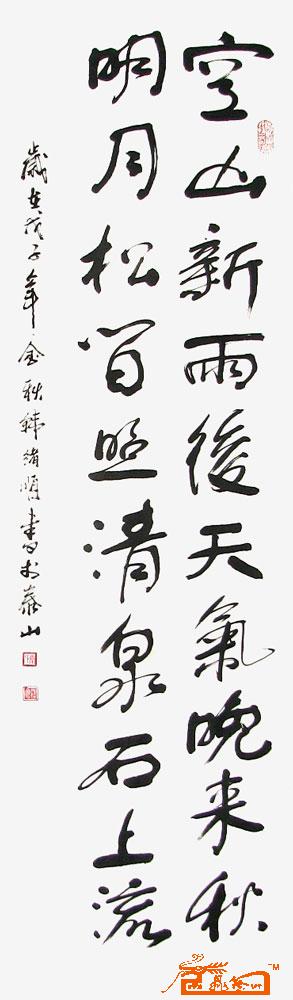 空山新雨後天氣晚来秋
明月松間照清泉石上流
歲在戊子年金秋韩绪顺書於泰山
TM